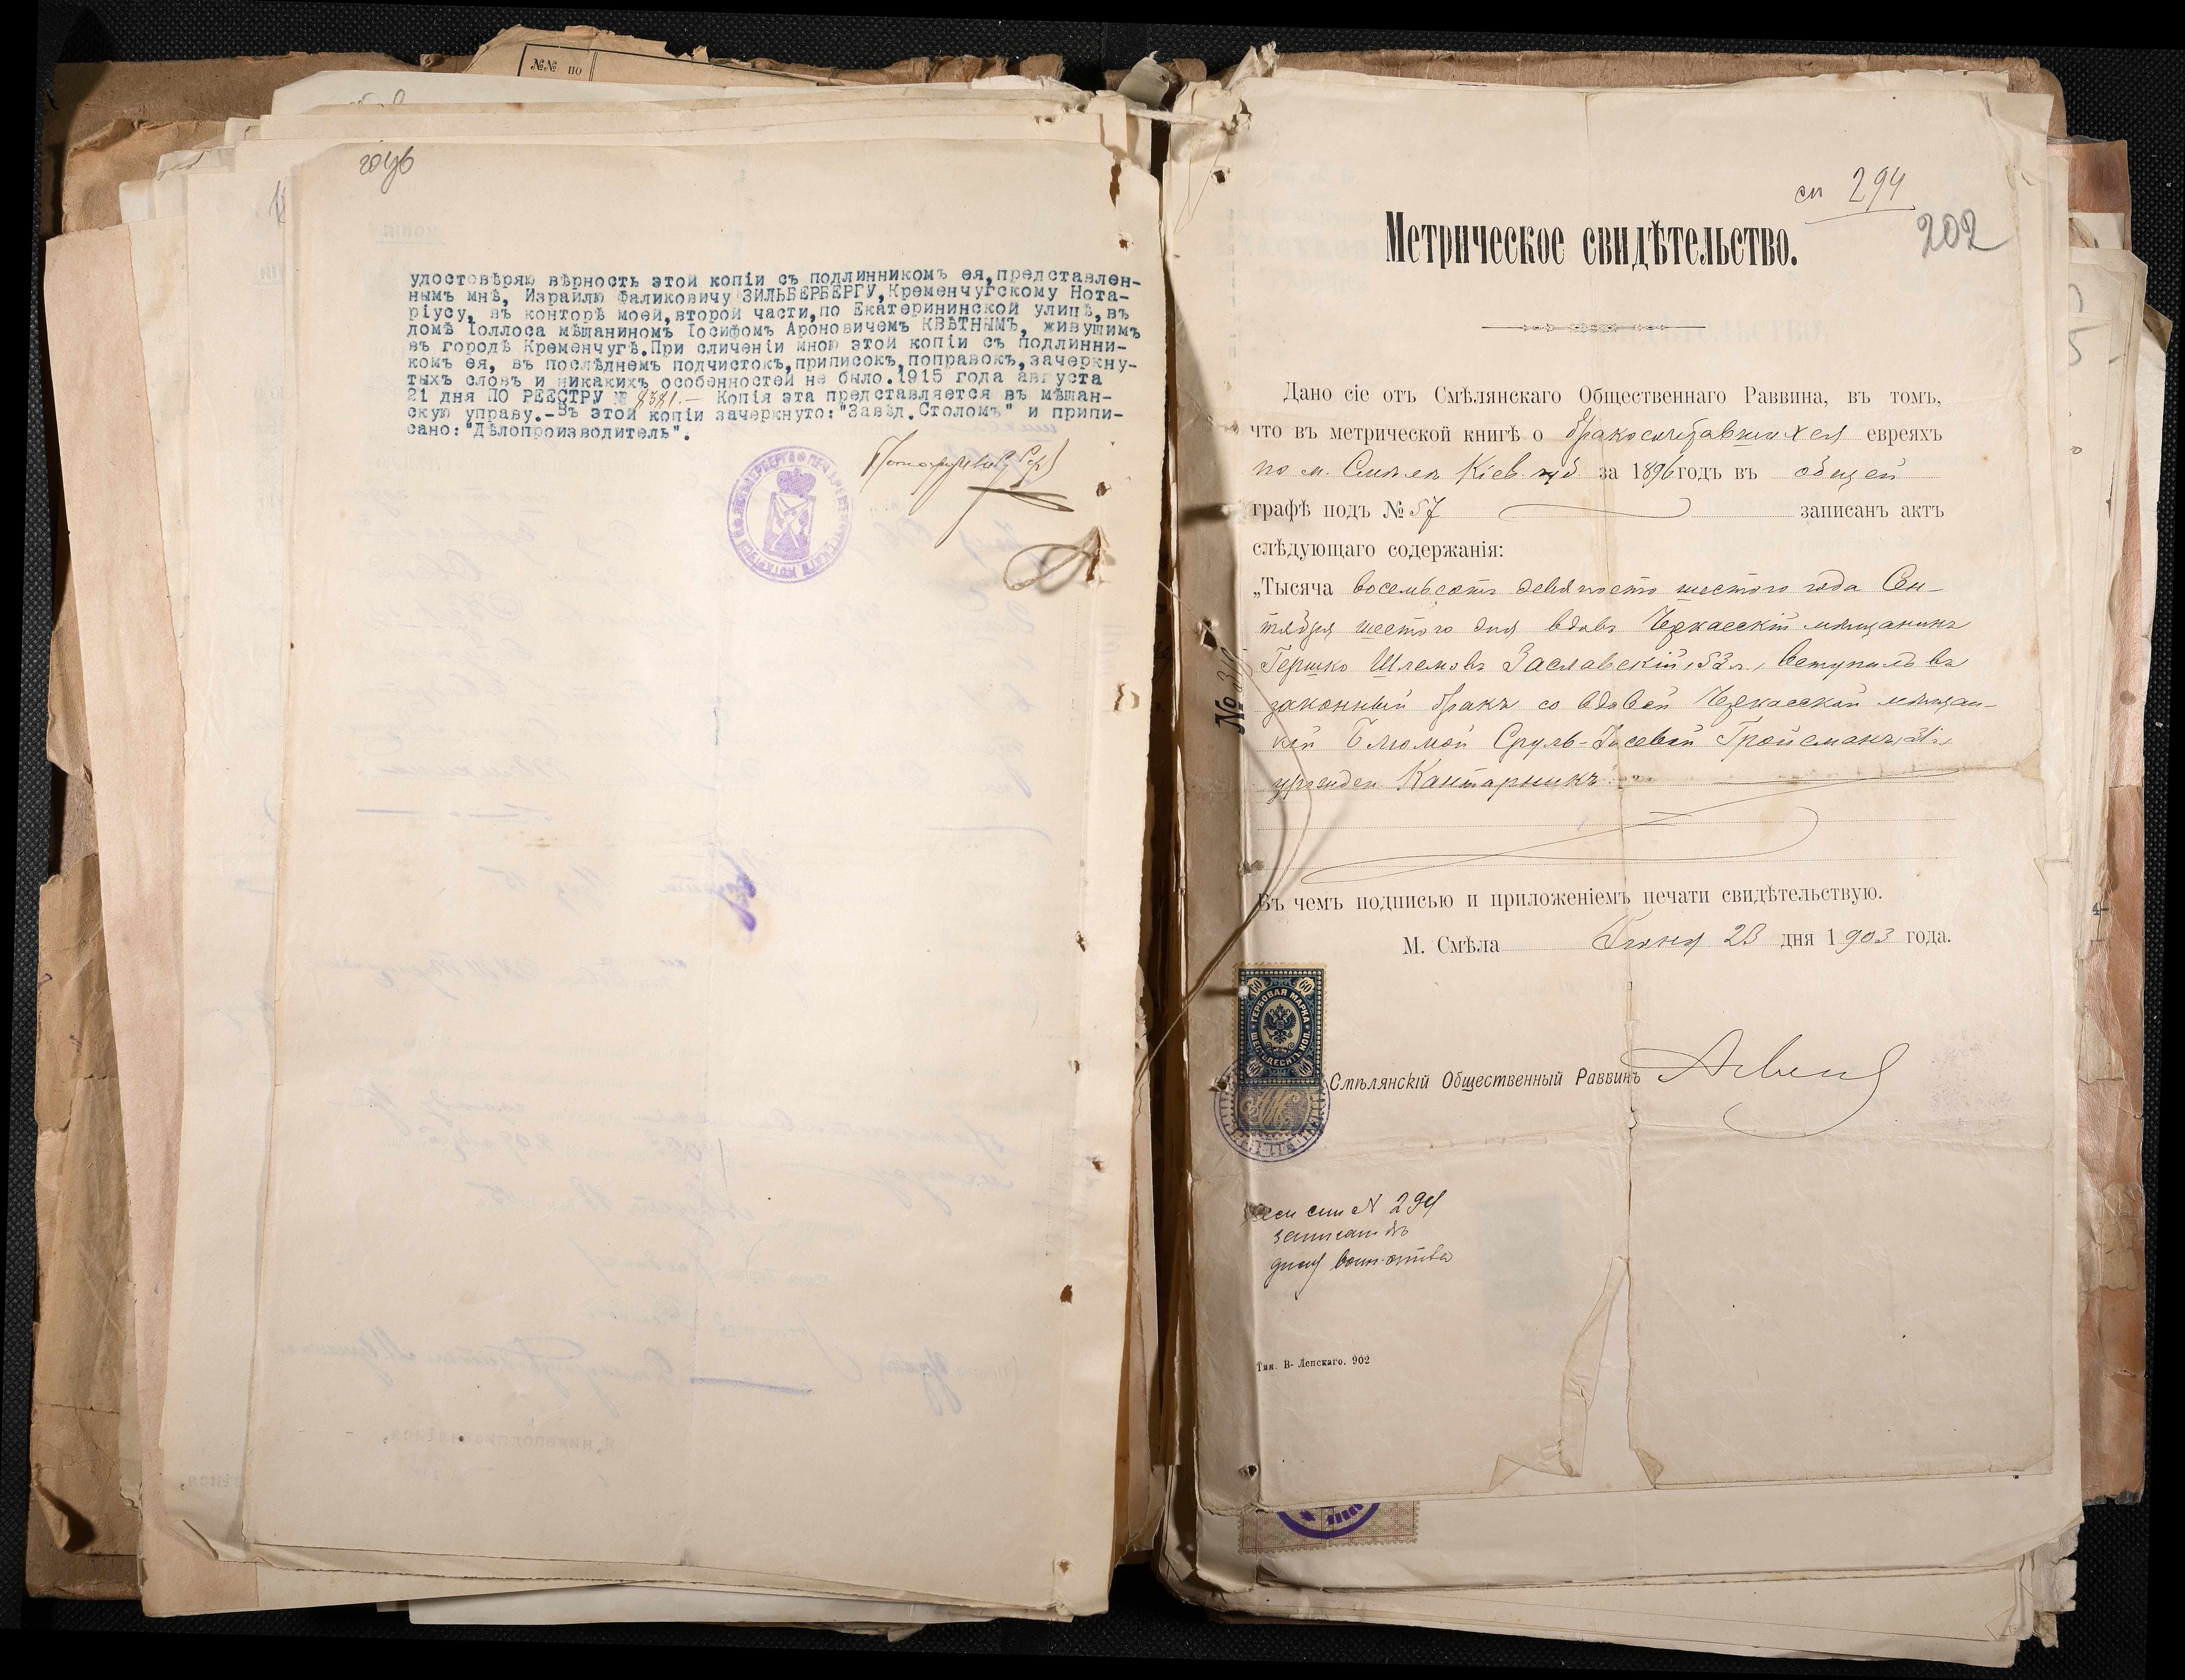 №№ по
удостовѣряю вѣрность этой копіи съ подлинникомъ ея, представлен-
нымъ мнѣ, Израилю Фаликовичу ЗИЛЬБЕРБЕРГУ, Кременчугскому Нота-
ріусу, въ конторѣ моей, второй части, по Екатерининской улицѣ, въ
домѣ Іоллоса мѣщаниномъ Іосифомъ Ароновичемъ КВѢТНЫМЪ, живущимъ
въ городѣ Кременчугѣ. При сличеніи мною этой копіи съ подлинни-
комъ ея, въ послѣднемъ подчистокъ, приписокъ, поправокъ, зачеркну-
тыхъ словъ и никакихъ особенностей не было. 1915 года августа
21 дня ПО РЕЕСТРУ № 8381.- Копія эта представляется въ мѣщан-
скую управу.-Въ этой копіи зачеркнуто: "Завѣд. Столомъ" и припи-
сано: "Дѣлопроизводитель".
сп 294
202
Метрическое свидѣтельство.
Дано сіе отъ Смѣлянскаго Общественнаго Раввина, въ томъ,
что въ метрической книгѣ о бракосочетавшихся евреяхъ
по м. Смѣла Кіев. губ за 1896 годъ въ общей
графѣ подъ № 57 записанъ актъ
слѣдующаго содержанія:
„Тысяча восемьсотъ девяносто шестого года Сен-
тября шестого дня вдовъ Черкасскій мѣщанинъ
Гершко Шлемовъ Заславскій, 53 л., вступилъ въ
законный бракъ со вдовой Черкасской мѣщан-
кой Блюмой Сруль-Іосевой Гройсманъ,
урожден. Кантарникъ"
Въ чемъ подписью и приложеніемъ печати свидѣтельствую.
М. Смѣла Іюня 23 дня 1903 года.
60 60
ГЕРБОВАЯ МАРКА
ШЕСТЬДЕСЯТЪ КОП.
60 60
Смѣлянскій Общественный Раввинъ
№ 294
записанъ
Тип. В. Лепскаго. 902